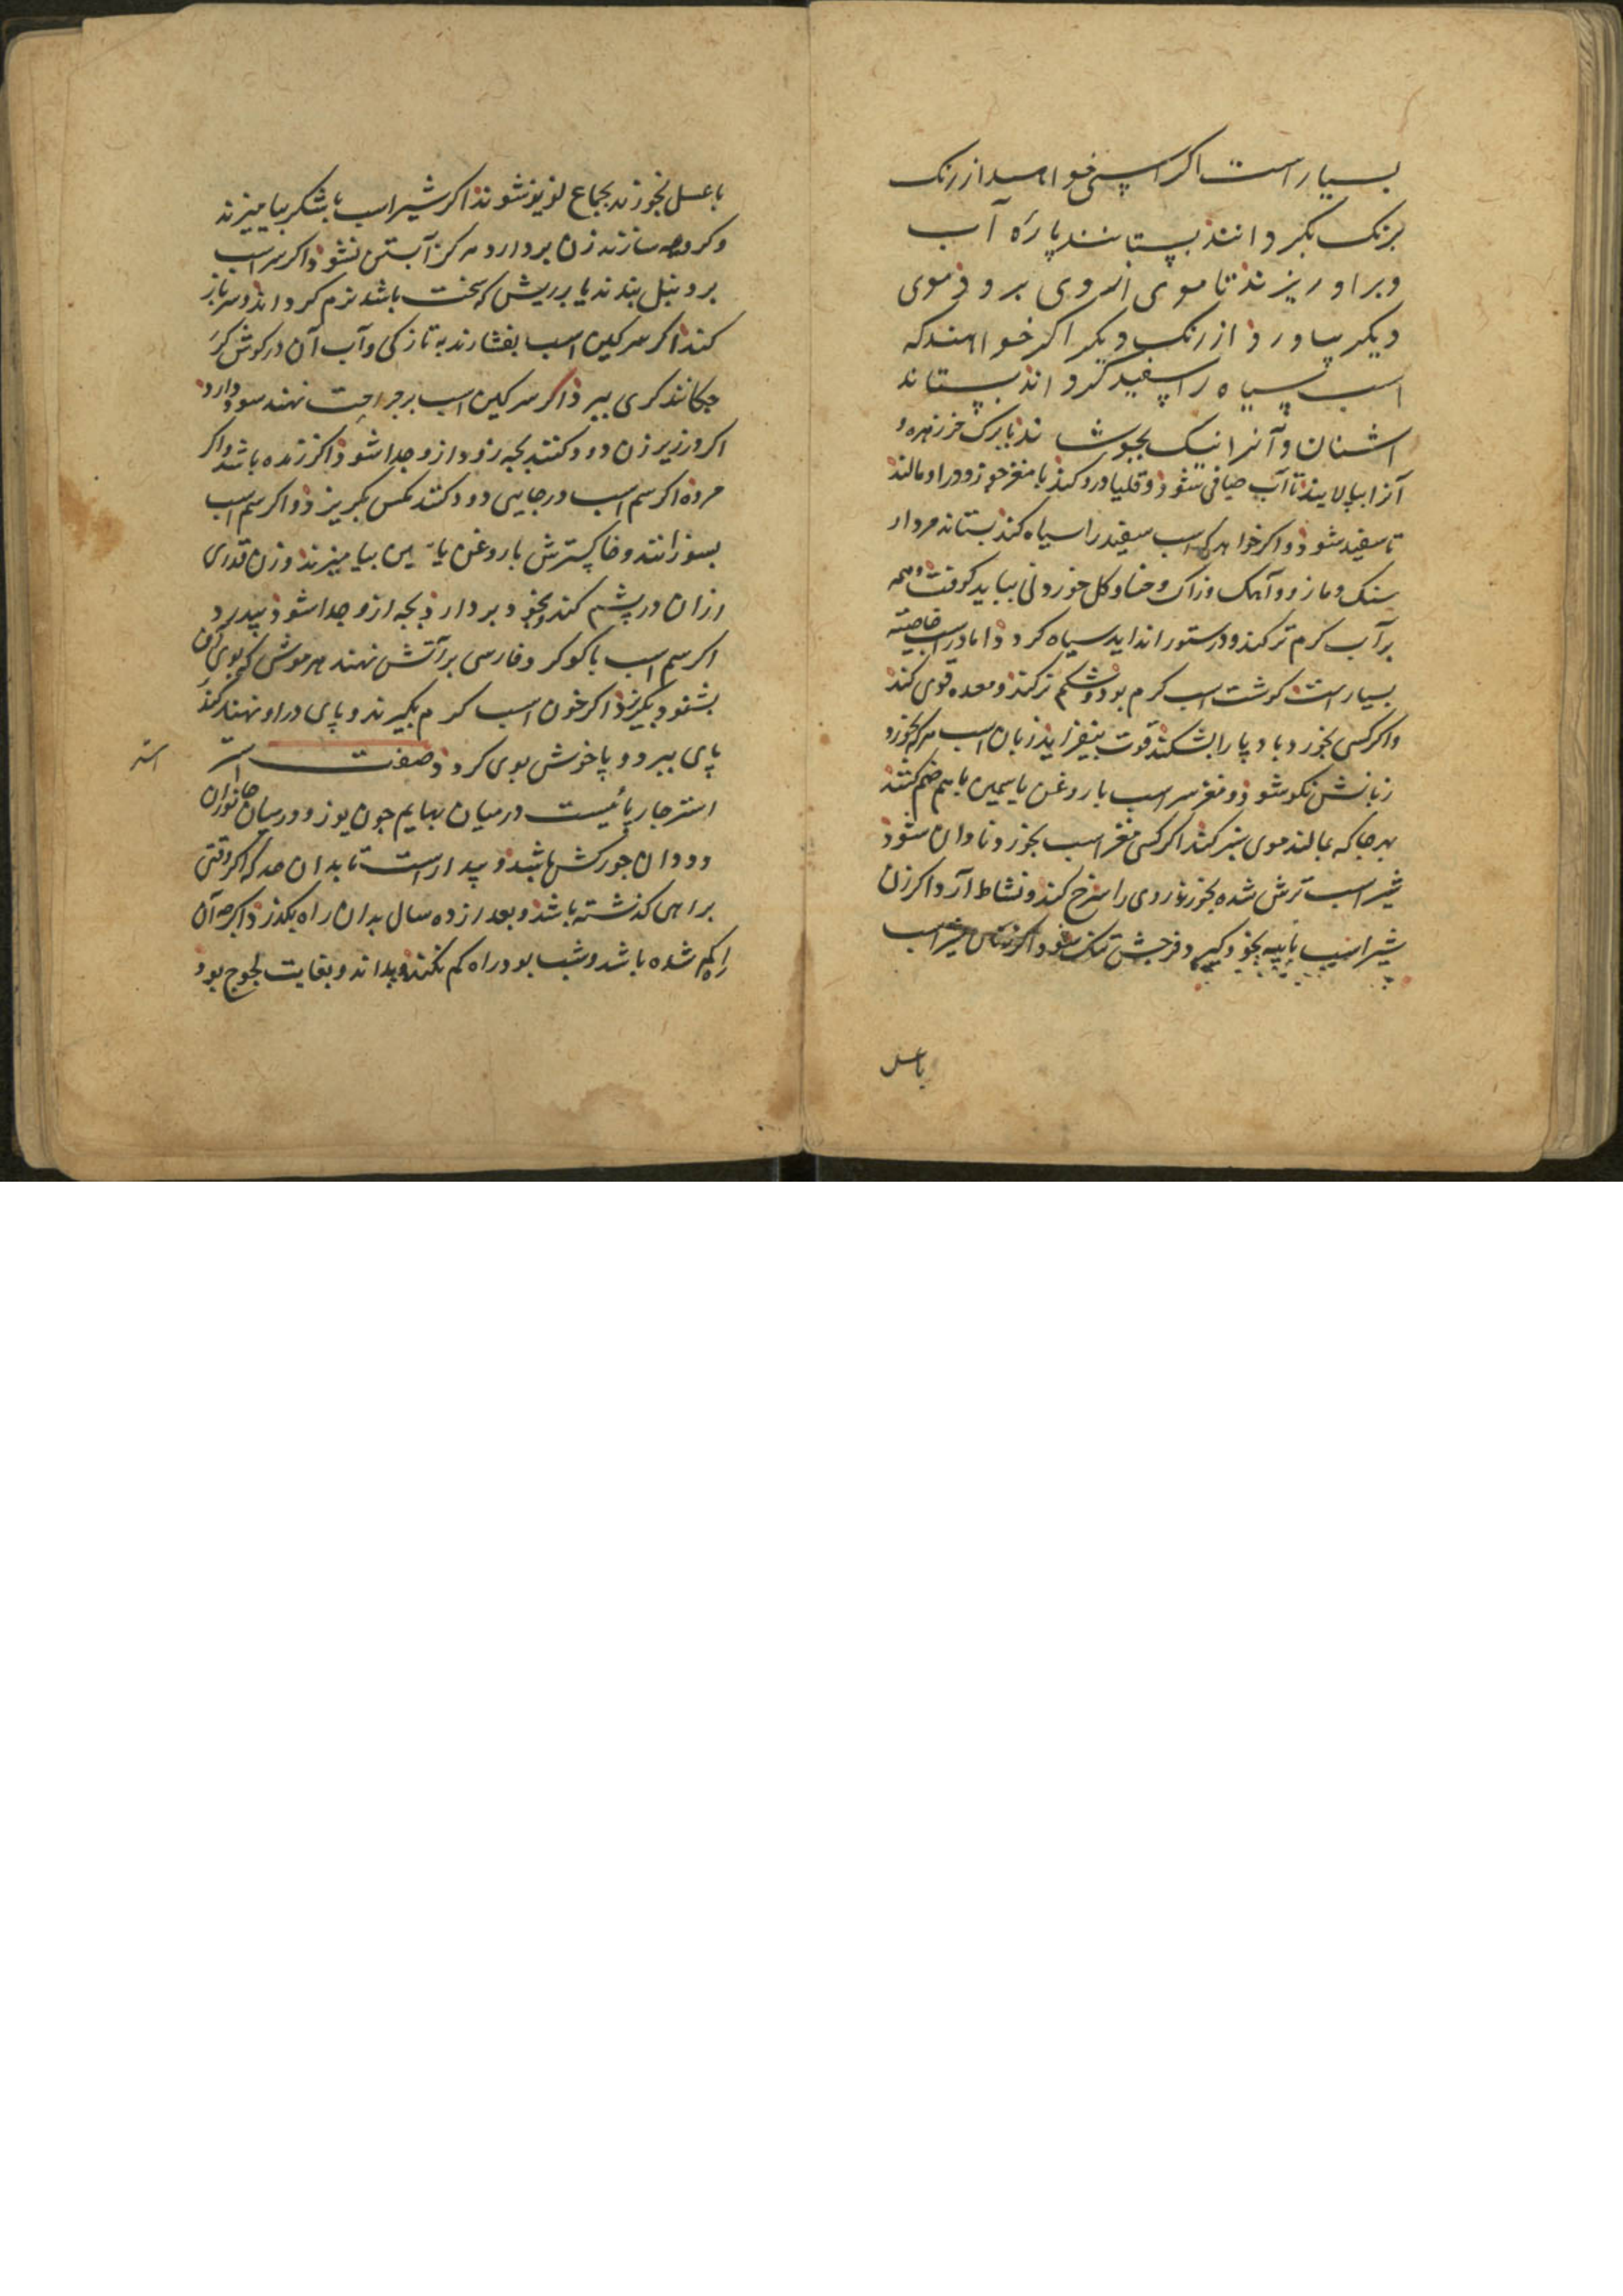 بسیار است اکر اسپی خواهید از رنک
برنک بکردانند بستانند پارهٔ آب
وبراو ریزند تا موی از وی برود و موی
دیکر بیاورد از رنک دیکر اکر خواهند که
اسب سیاه را سفید کردانند بستانند
اشنان و آنرا نیک بجوشانند با برک خرزهره و
آنرا بپالایند تا آب صافی شود و قلیا درو کنند با مغز جوز و در او مالند
تا سفید شود و اکر خواهد که اسب سفید را سیاه کند بستاند مردار
سنک و مازو و آهک و زاک و حنا و کل خوردنی بباید کوفت و همه
برآب کرم تر کند و در ستور انداید سیاه کردد اما در اسب خاصیته
بسیار است کوشت اسب کرم بود و شکم تر کند و معده قوی کند
واکر کسی بخورد باد پا را بشکند قوت بیفزاید زبان اسب هرکه بخورد
زبانش نکو شود و مغز سر اسب با روغن یاسمین باهم ضم کنند
بهرجا که بمالند موی سبز کند اکر کسی مغز اسب بخورد نادان شود
شیر اسب ترش شده بخورند روی را سرخ کند و نشاط آرد اکر زن
شیر اسب با پیه بخود کیرد فرجش تنک شود و اکر شیر اسب
باعسل
باعسل بخورند بجماع لذیذ شوند اکر شیر اسب با شکر بیامیزند
و کروهه سازند زن بردارد هرکز آبستن نشود اکر سر اسب
بر دنبل بندند یا بر ریش که سخت باشد نرم کرداند و سر باز
کند اکر سرکین اسب بفشارند به تازکی و آب آن در کوش کر
چکانند کری ببرد اکر سرکین اسب بر جراحت نهند سود دارد
اکر در زیر زن دود کنند بچه زود از و جدا شود اکر زنده باشد و اکر
مرده اکر سم اسب در جایی دود کنند مکس بکریزد و اکر سم اسب
بسوزانند و خاکسترش با روغن یاسمین بیامیزند وزن قدری
ازان در پشم کند و بخود بردارد بچه ازو جدا شود بی درد
اکر سم اسب با کوکرد فارسی بر آتش نهند هر موش که بوی آن
بشنود بکریزد اکر خون اسب کرم بکیرند و پای در او نهند کند
پای ببرد و پا خوش بوی کردد صفت استر
استر
استر چارپائیست در میان بهایم چون یوز و در میان جانوران
و ددان خورکش باشد و بیدارست تا بدان حد که اکر وقتی
براهی کذشته باشد و بعد از ده سال بدان راه بکذرد اکرچه آن
راه کم شده باشد و شب بود راه کم نکند و بداند و بغایت لجوج بود